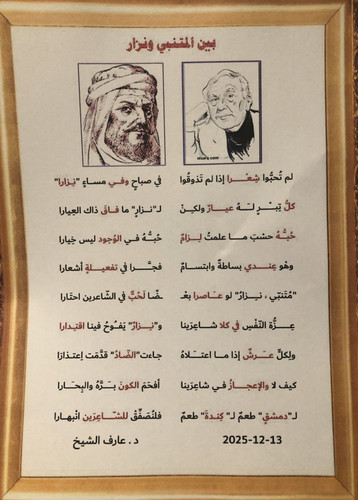 بين المتنبي ونزار
nizariq.com
لم تُحبُّوا شِعْـــرا إذا لم تَذوقُوا في صباحٍ وفي مساءٍ "نِزارا"
كلُّ تِبْـــرٍ لـــهُ عيـــارٌ ولكِنْ لـ"نـزارٍ" ما فاقَ ذاك العِيارا
حُبُّـهُ حسْبَ مـا علمتُ لِـزامٌ حُبُّـهُ فـي الوُجودِ ليس خِيارا
وهو عِنـدي بساطةٌ وابتسـامٌ فجـرَّا في تفعيـلةٍ أشعارا
"مُتَنبِّي ، نـزارُ" لو عـاصرا بعْـ ـضًا لَحُبٌّ في الشّاعرين احتَارا
عـزَّةُ النَّفْسِ في كلا شاعرَينا و"نـزارٌ" يَفـوحُ فينا اقتِدارا
ولِكلٍّ عــرشٌ إذا ما اعتـلاهُ جاءت"الضّادُ" قدَّمَت اِعتذارًا
كيفَ لا والإعجـازُ في شاعرَينا أفحَمَ الكونَ بَـرَّهُ والبِحَـارا
لـ"دمشقٍ" طعمٌ لـ"كِندةَ" طعمٌ فلتُصفِّقْ للشّـاعِرَين انْبِهارا
13-12-2025 د . عارف الشيخ